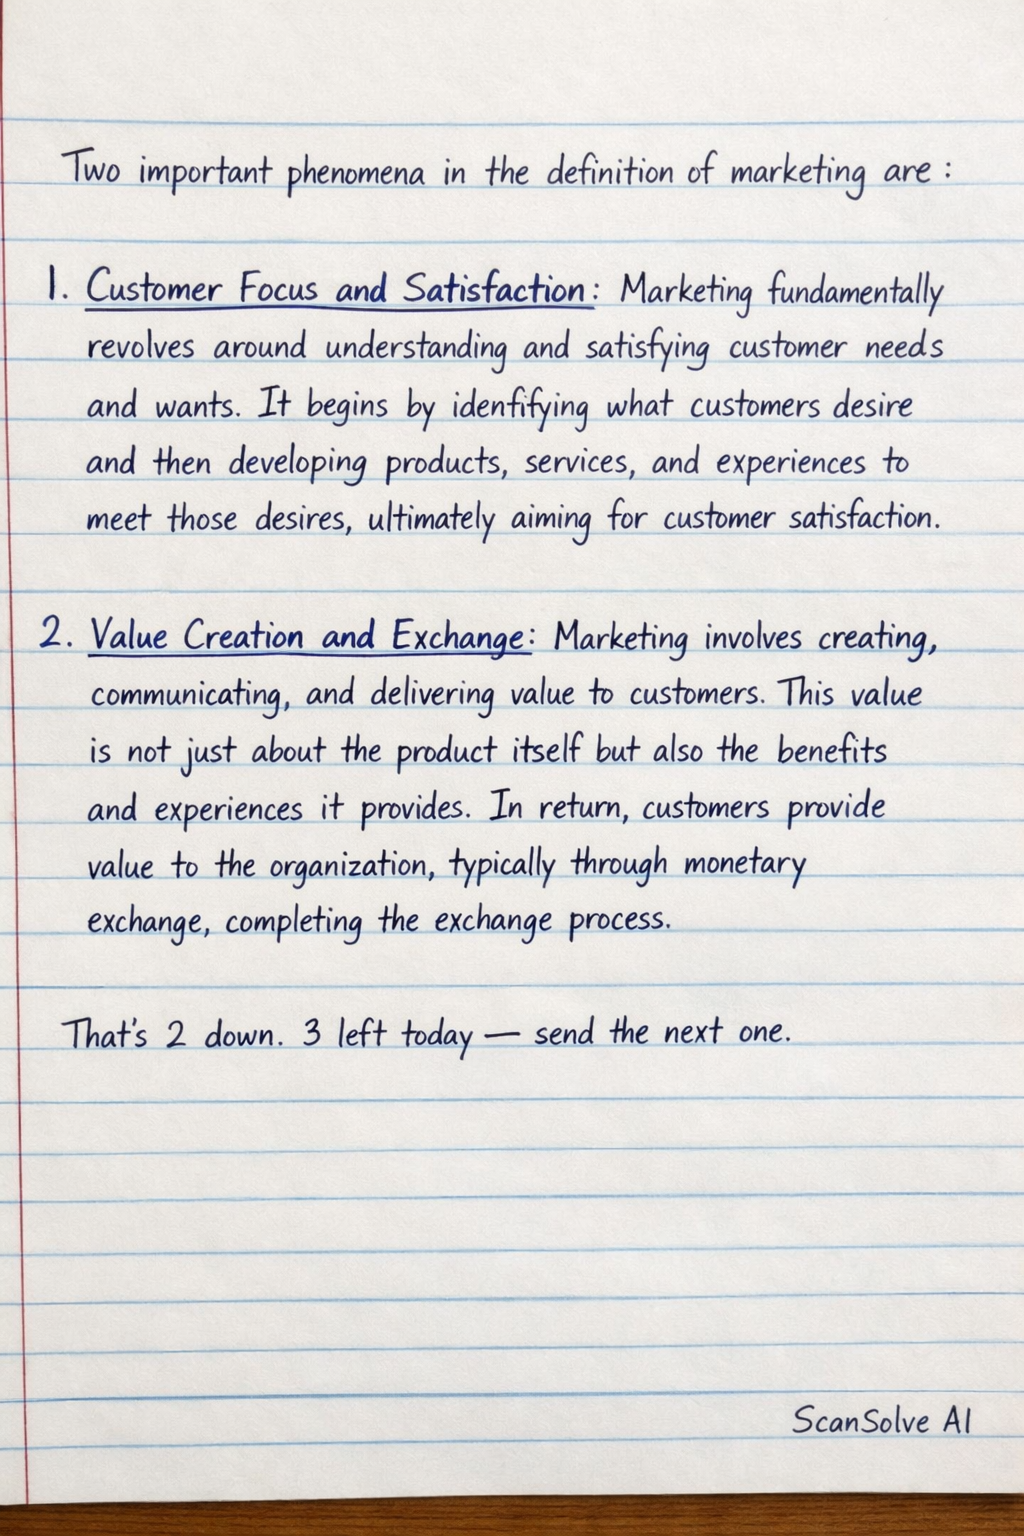 Two important phenomena in the definition of marketing are :
1. Customer Focus and Satisfaction: Marketing fundamentally
revolves around understanding and satisfying customer needs
and wants. It begins by idenfifying what customers desire
and then developing products, services, and experiences to
meet those desires, ultimately aiming for customer satisfaction.
2. Value Creation and Exchange: Marketing involves creating,
communicating, and delivering value to customers. This value
is not just about the product itself but also the benefits
and experiences it provides. In return, customers provide
value to the organization, typically through monetary
exchange, completing the exchange process.
That's 2 down. 3 left today — send the next one.
ScanSolve AI